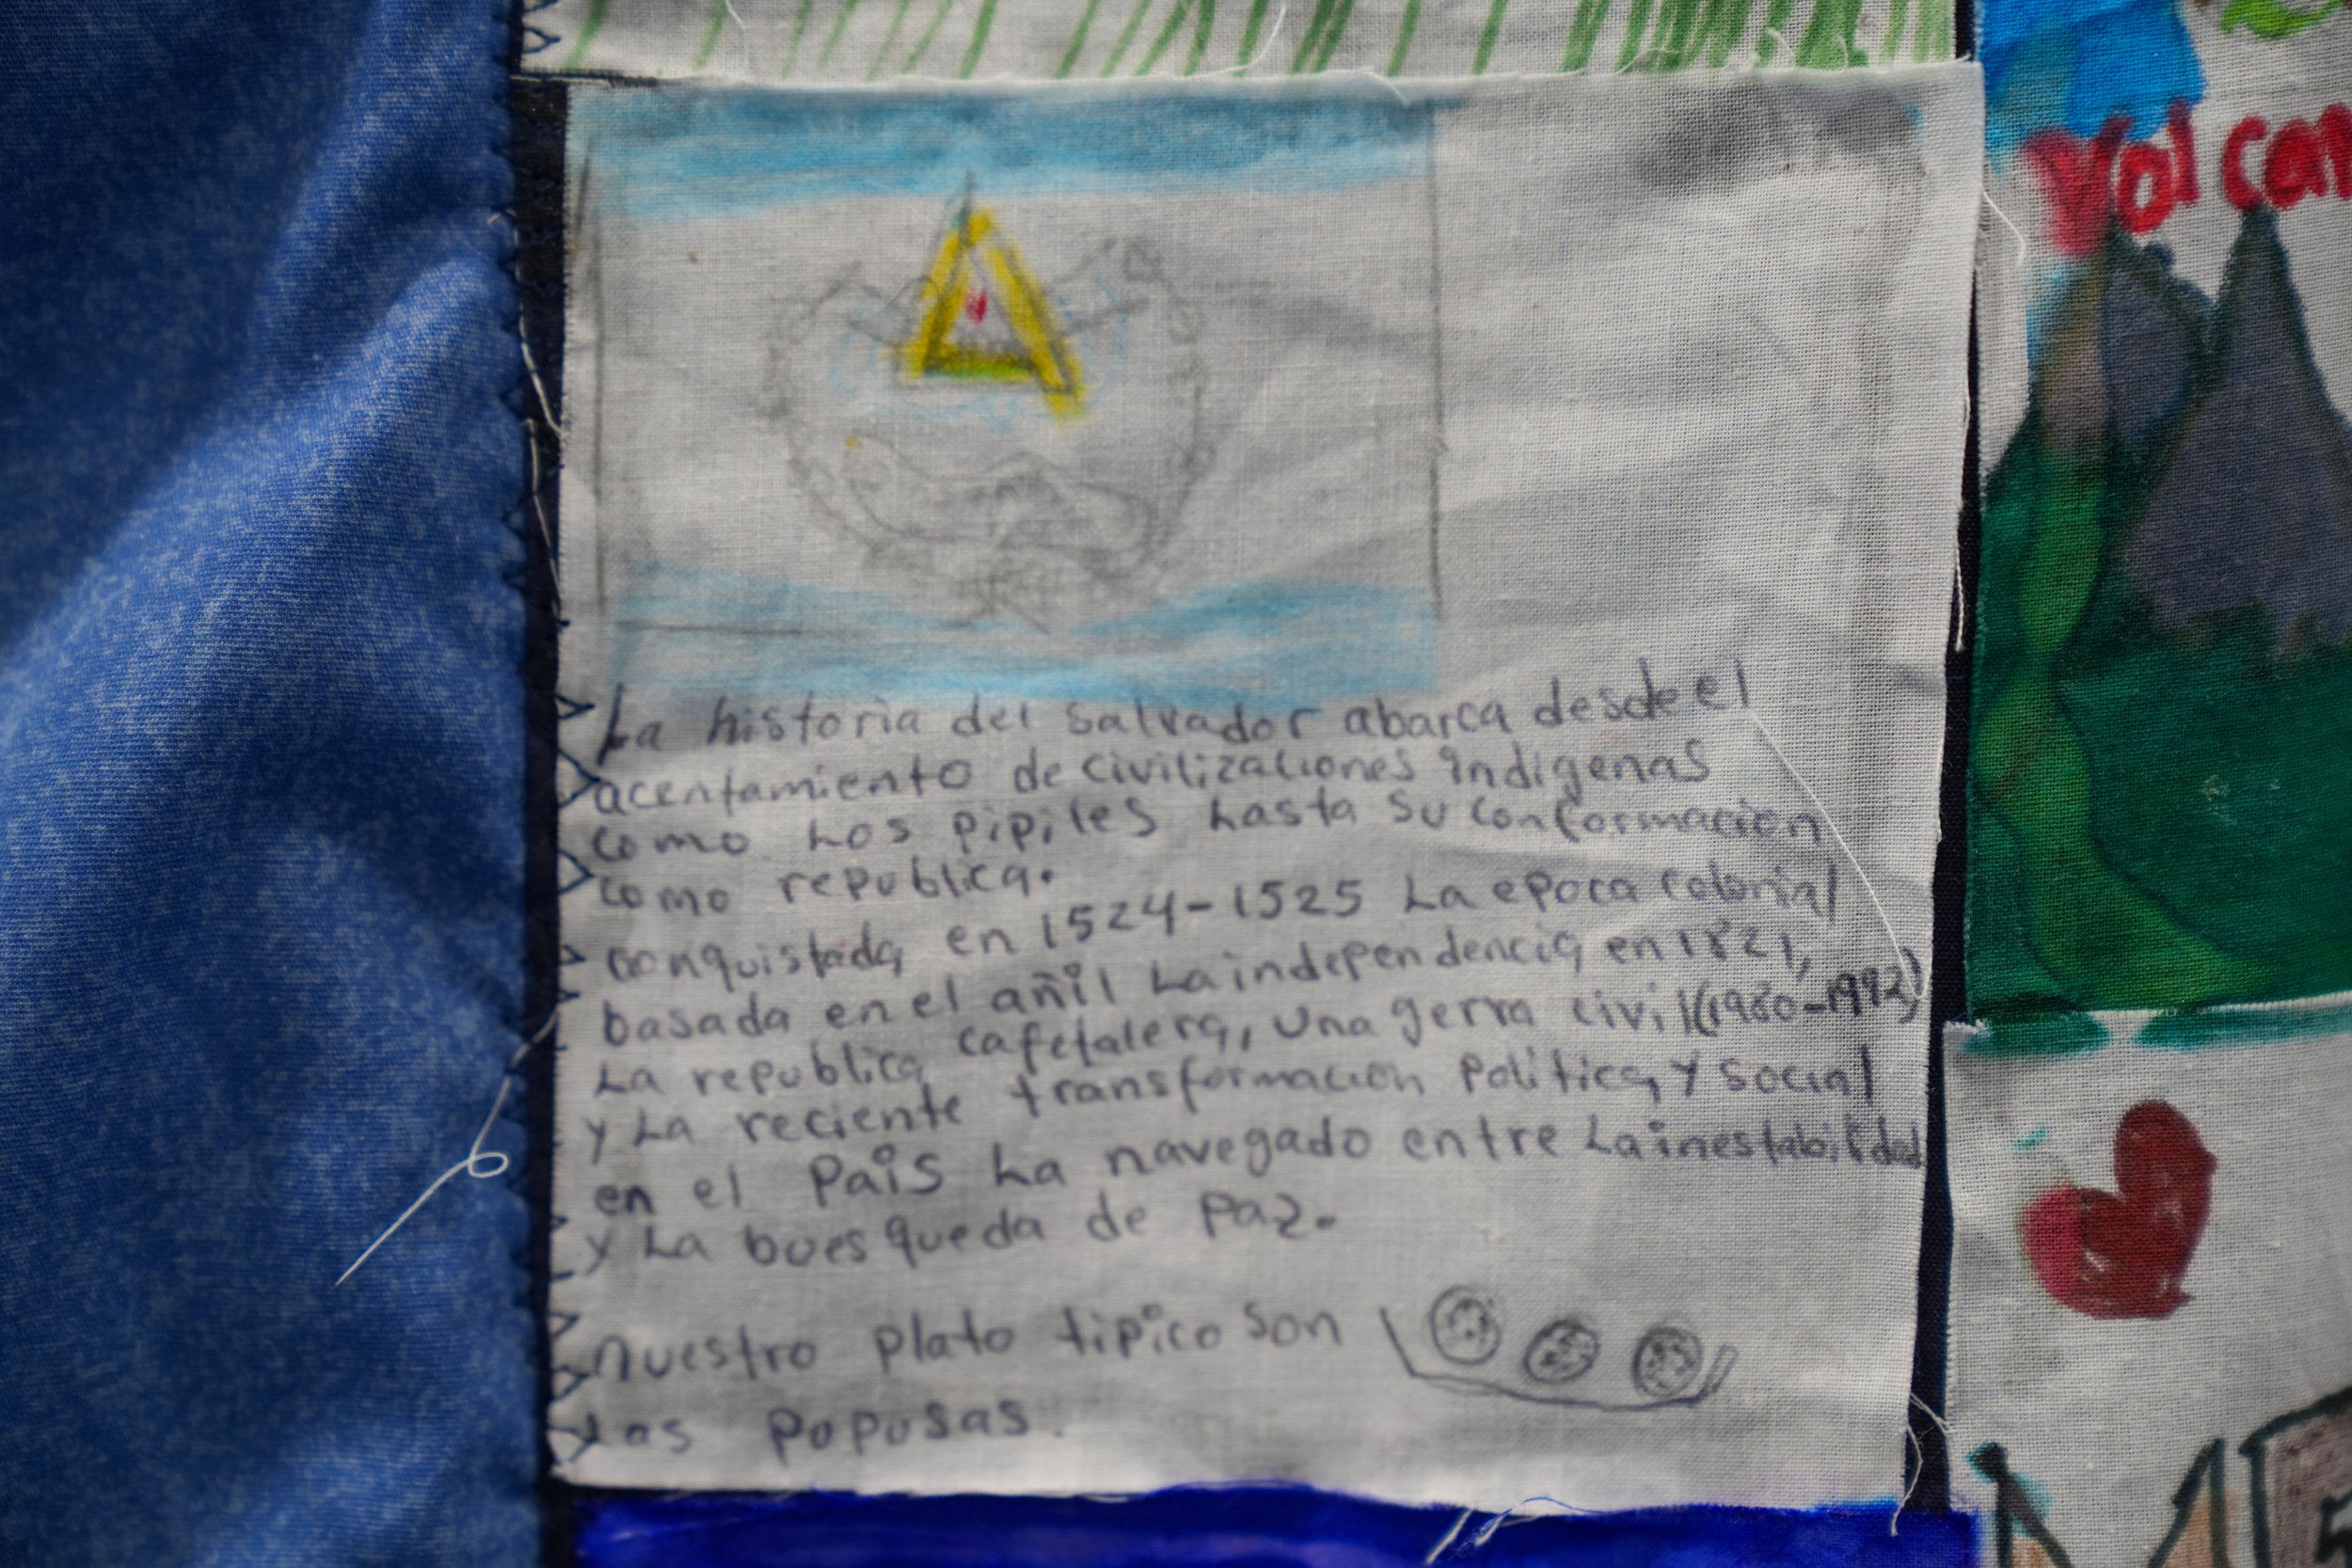 La historia del Salvador abarca desde el
acentamiento de civilizaciones indigenas
como Los pipiles hasta su conformación
como republica.
conquistada en 1524-1525 La epoca colonial
basada en el añil La independencia en 1821,
La republica cafetalera, una gerra civil (1980-1992)
y La reciente transformación politica y social
en el Pais ha navegado entre La inestabilidad
y La buesqueda de Paz.
nuestro plato tipico son
Las Popusas.
Volcan